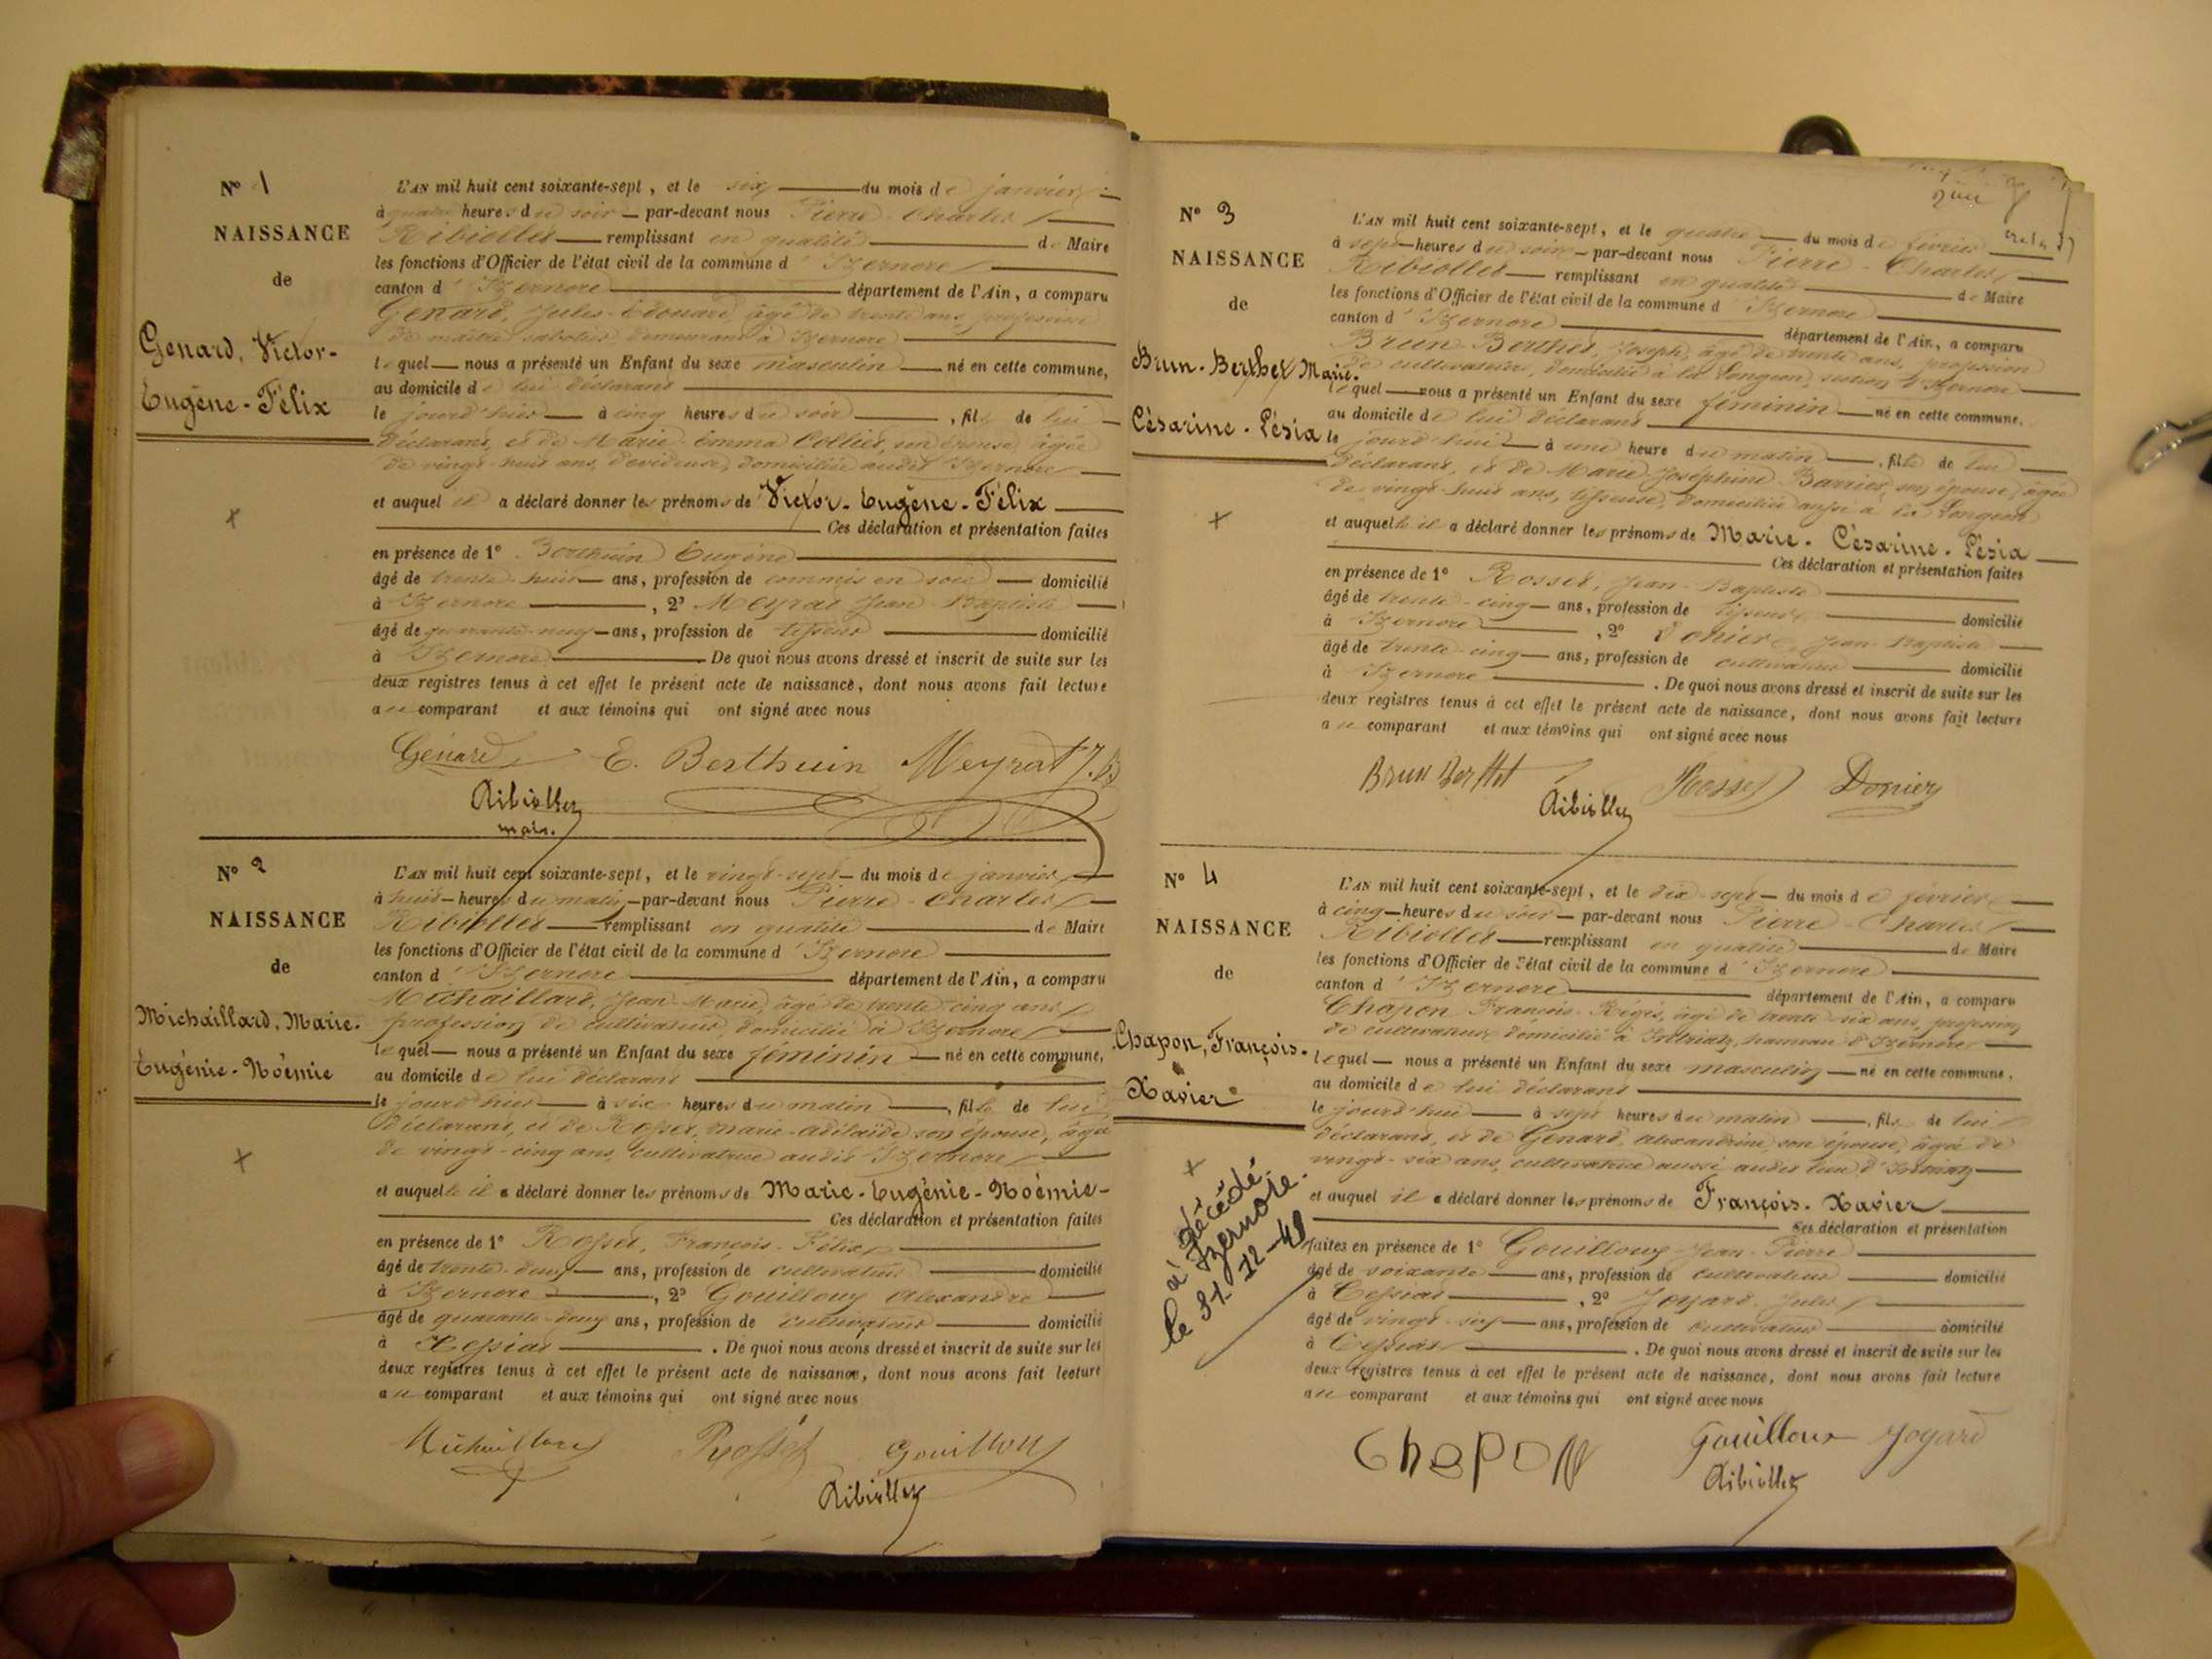 N° 1
NAISSANCE
de
Genard, Victor-
Eugène-Félix
L'AN mil huit cent soixante-sept, et le six du mois de janvier
à quatre heures du soir par-devant nous Pierre-Charles
Ribiollet remplissant en qualité de Maire
les fonctions d'Officier de l'état civil de la commune d'Izernore
canton d'Izernore département de l'Ain, a comparu
Genard, Jules-Edouard, âgé de trente ans, profession
de maître sabotier, demeurant à Izernore
lequel nous a présenté un Enfant du sexe masculin né en cette commune,
au domicile de lui déclarant
le jourd'hier à cinq heures du soir, fils de lui
déclarant, et de Marie-Emma Collier, son épouse, âgée
de vingt-huit ans, devideuse, domiciliée audit Izernore
et auquel il a déclaré donner les prénoms de Victor-Eugène-Félix
Ces déclaration et présentation faites
en présence de 1° Berthuin Eugène
âgé de trente-huit ans, profession de commis en soie domicilié
à Izernore, 2° Meyrat Jean-Baptiste
âgé de quarante-neuf ans, profession de tisseur domicilié
à Izernore De quoi nous avons dressé et inscrit de suite sur les
deux registres tenus à cet effet le présent acte de naissance, dont nous avons fait lecture
au comparant et aux témoins qui ont signé avec nous
Génard E. Berthuin Meyrat J. B
Ribiollet
maire.
N° 2
NAISSANCE
de
Michaillard, Marie-
Eugénie-Noémie
L'AN mil huit cent soixante-sept, et le vingt-sept du mois de janvier
à huit heures du matin par-devant nous Pierre-Charles
Ribiollet remplissant en qualité de Maire
les fonctions d'Officier de l'état civil de la commune d'Izernore
canton d'Izernore département de l'Ain, a comparu
Michaillard, Jean-Marie, âgé de trente-cinq ans
profession de cultivateur, domicilié à Izernore
lequel nous a présenté un Enfant du sexe féminin né en cette commune,
au domicile de lui déclarant
le jourd'hier à six heures du matin, fille de lui
déclarant, et de Rosset, Marie-Adélaïde son épouse, âgée
de vingt-cinq ans, cultivatrice audit Izernore
et auquelle il a déclaré donner les prénoms de Marie-Eugénie-Noémie-
Ces déclaration et présentation faites
en présence de 1° Rosset, François-Félix
âgé de trente-deux ans, profession de cultivateur domicilié
à Izernore, 2° Gouilloux Alexandre
âgé de quarante-deux ans, profession de cultivateur domicilié
à Cessiat. De quoi nous avons dressé et inscrit de suite sur les
deux registres tenus à cet effet le présent acte de naissance, dont nous avons fait lecture
au comparant et aux témoins qui ont signé avec nous
Michaillard Rosset Gouilloux
Ribiollet
N° 3
NAISSANCE
de
Brun-Berthet Marie-
Césarine-Lésia
L'AN mil huit cent soixante-sept, et le quatre du mois de février
à sept heures du soir par-devant nous Pierre-Charles
Ribiollet remplissant en qualité de Maire
les fonctions d'Officier de l'état civil de la commune d'Izernore
canton d'Izernore département de l'Ain, a comparu
Brun-Berthet, Joseph, âgé de trente ans, profession
de cultivateur, domicilié à la Longeon, section d'Izernore
lequel nous a présenté un Enfant du sexe féminin né en cette commune.
au domicile de lui déclarant
le jourd'hui à une heure du matin, fille de lui
déclarant, et de Marie Joséphine Barrier, son épouse, âgée
de vingt-huit ans, tisseuse, domiciliée aussi à la Longeon
et auquelle il a déclaré donner les prénoms de Marie-Césarine-Lésia
Ces déclaration et présentation faites
en présence de 1° Rosset, Jean-Baptiste
âgé de trente-cinq ans, profession de tisseur domicilié
à Izernore, 2° Donier, Jean-Baptiste
âgé de trente-cinq ans, profession de cultivateur domicilié
à Izernore. De quoi nous avons dressé et inscrit de suite sur les
deux registres tenus à cet effet le présent acte de naissance, dont nous avons fait lecture
au comparant et aux témoins qui ont signé avec nous
Brun Berthet Rosset Donier
Ribiollet
N° 4
NAISSANCE
de
Chapon, François-
Xavier
L'AN mil huit cent soixante-sept, et le dix-sept du mois de février
à cinq heures du soir par-devant nous Pierre-Charles
Ribiollet remplissant en qualité de Maire
les fonctions d'Officier de l'état civil de la commune d'Izernore
canton d'Izernore département de l'Ain, a comparu
Chapon François-Régis, âgé de trente-six ans, profession
de cultivateur domicilié à Intriat, hameau d'Izernore
lequel nous a présenté un Enfant du sexe masculin né en cette commune,
au domicile de lui déclarant
le jourd'hui à sept heures du matin, fils de lui
déclarant, et de Genard, Alexandrine, son épouse, âgée de
vingt-six ans, cultivatrice aussi audit lieu d'Intriat
et auquel il a déclaré donner les prénoms de François-Xavier
Ces déclaration et présentation
faites en présence de 1° Gouilloux Jean-Pierre
âgé de soixante ans, profession de cultivateur domicilié
à Cessiat, 2° Joyard, Jules
âgé de vingt-six ans, profession de cultivateur domicilié
à Cessiat. De quoi nous avons dressé et inscrit de suite sur les
deux registres tenus à cet effet le présent acte de naissance, dont nous avons fait lecture
au comparant et aux témoins qui ont signé avec nous
Chapon Gouilloux Joyard
Ribiollet
Décédé
à Izernore.
le 31-12-48